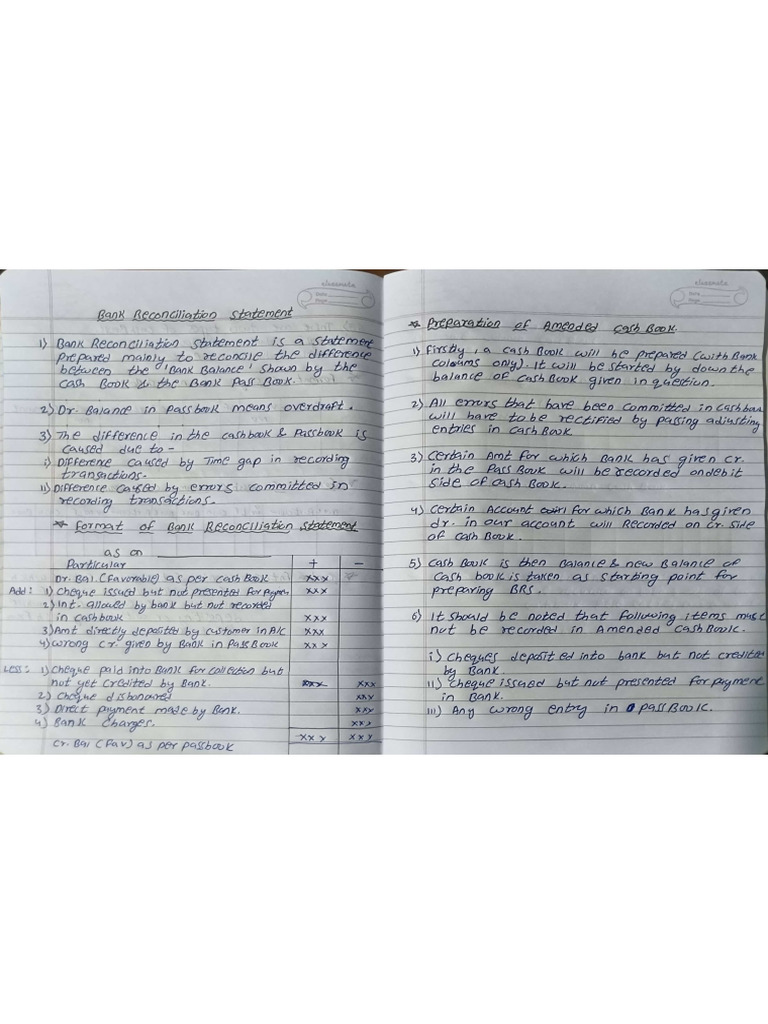 classmate
Date
Page
Bank Reconciliation Statement
1) Bank Reconciliation Statement is a statement
prepared mainly to reconcile the difference
between the 'Bank Balance' shown by the
Cash Book & the Bank Pass Book.
2) Dr. Balance in Passbook means overdraft.
3) The difference in the cashbook & Passbook is
caused due to -
i) Difference caused by Time gap in recording
transactions.
ii) Difference caused by errors committed in
recording transactions.
* Format of Bank Reconciliation Statement
as on
Particular + -
Dr. Bal. (Favorable) as per cash Book xxx
Add: 1) Cheque issued but not presented for paymen xxx
2) Int. allowed by bank but not recorded
in cashbook xxx
3) Amt directly deposited by customer in A/c xxx
4) wrong cr. given by Bank in Pass Book xxx
Less: 1) Cheque paid into Bank for collection but
not yet credited by Bank. xxx xxx
2) Cheque dishonoured xxx
3) Direct payment made by Bank. xxx
4) Bank Charges. xxx
Cr. Bal (Fav) as per passbook xxx xxx
classmate
Date
Page
* Preparation of Amended Cash Book
1) Firstly, a cash Book will be prepared (with Bank
coloums only). It will be started by down the
balance of cash Book given in question.
2) All errors that have been committed in cashboo
will have to be rectified by passing adjusting
entries in cash Book.
3) Certain Amt for which Bank has given cr.
in the Pass Book will be recorded on debit
side of Cash Book.
4) Certain Account for which Bank has given
dr. in our account will Recorded on Cr. side
of cash Book.
5) Cash Book is then Balance & new Balance of
Cash book is taken as starting point for
preparing BRS.
6) It should be noted that following items must
not be recorded in Amended Cash Book.
i) Cheques deposited into bank but not credited
by Bank.
ii) Cheque issued but not presented for payment
in Bank.
iii) Any wrong entry in passBook.